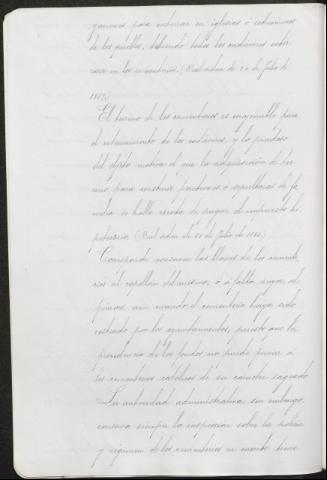 para enterrar en iglesias ó cementerios
de los pueblos, debiendo todos los cadáveres ente-
rrarse en los cementerios. (Real orden de 20 de Julio de
1857.)
El terreno de los cementerios es enajenable para
el enterramiento de los cadáveres, y lo piadoso
del objeto motiva el que la adquisición de ter-
reno para construir panteones ó sepulturas de fa-
milia se halle exenta de pagar el impuesto hi-
potecario. (Real orden de de Julio de
Corresponde conservar las llaves de los cemente-
rios al capellán del mismo, ó á falta suya al
párroco, aun cuando el cementerio haya sido
costeado por los ayuntamientos, puesto que la
procedencia de los fondos no puede privar á
los cementerios católicos de su carácter sagrado.
La autoridad administrativa, sin embargo,
conserva siempre la inspección sobre la policía
y régimen de los cementerios en cuanto tiene